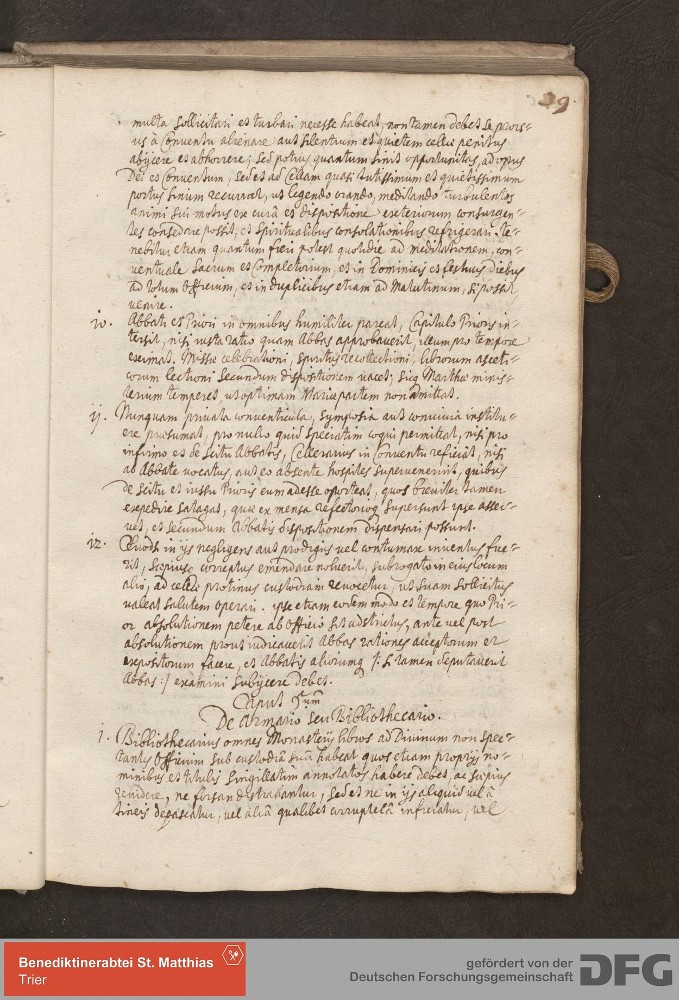 29.
multa sollicitari et turbari necesse habeat, non tamen debet se pror=
us à Conventu alienare aut silentium et quietem cellæ penitus
abÿcere et abhorrere; sed potius quantum sinit opportunitas, ad opus
Dei et Conventum, sed et ad Cellam quasi tutissimum et quietissimum
portus sinum recurrat, ut legendo orando, meditando turbulentos
animi sui motus ex curâ et dispositione exteriorum consurgen=
tes consedare possit, et spiritualibus consolationibus refrigerari. te=
nebitur etiam quantum fieri potest quotidie ad meditationem, con=
ventuale Sacrum et Completorium, et in Dominicis et festivis diebus
ad totum Officium, et in duplicibus etiam ad Matutinum, si possit
venire.
10. Abbati et Priori in omnibus humiliter pareat, Capitulo Prioris in=
tersit, nisi iusta ratio quam Abbas approbaverit, illum pro tempore
eximat. Missæ celebrationi, spiritus recollectioni, librorum asceti=
corum lectioni secundum dispositionem vacet; sicq Marthæ minis=
terium temperet, ut optimam Mariæ partem non admittat.
ij. Nunquam privata conventicula, symposia aut convivia institu=
ere præsumat, pro nullo quid speciatim coqui permittat, nisi pro
infirmo et de scitu Abbatis, Cellerarius in Conventu reficiat, nisi
ab Abbate vocatus, aut eo absente hospites supervenerint, quibus
de scitu et iussu Prioris eum adesse oporteat, quos breviter tamen
expedire satagat, quæ ex mensa refectorioq supersunt ipse asser=
vet, et secundum Abbatis dispositionem dispensari possunt.
12. Quods in ijs negligens aut prodigus vel contumax inventus fue=
rit, sæpiusq correptus emendare noluerit, subrogato in eius locum
alio, ad cellæ protinus custodiam revocetur, ut suam sollicitus
valeat salutem operari. ipse etiam eodem modo et tempore quo Pri=
or absolutionem petere ab Officio sit adstrictus, ante vel post
absolutionem prout iudicaverit Abbas rationes acceptorum et
expositorum facere, et Abbatis aliorumq /: si tamen deputaverit
Abbas :/ examini subÿcere debet.
Caput 5um
De Armario seu Bibliothecario.
1. Bibliothecarius omnes Monasterÿ libros ad Divinum non spec=
tantes Officium sub custodiâ suâ habeat quos etiam proprijs no=
minibus et titulis singillatim annotatos habere debet, ac sæpius
revidere, ne forsan distrahantur, sed et ne in ijs aliquid vel â
tineis depascatur, vel aliâ qualibet corruptelâ inficiatur, vel
Benediktinerabtei St. Matthias
Trier
gefördert von der
Deutschen Forschungsgemeinschaft
DFG